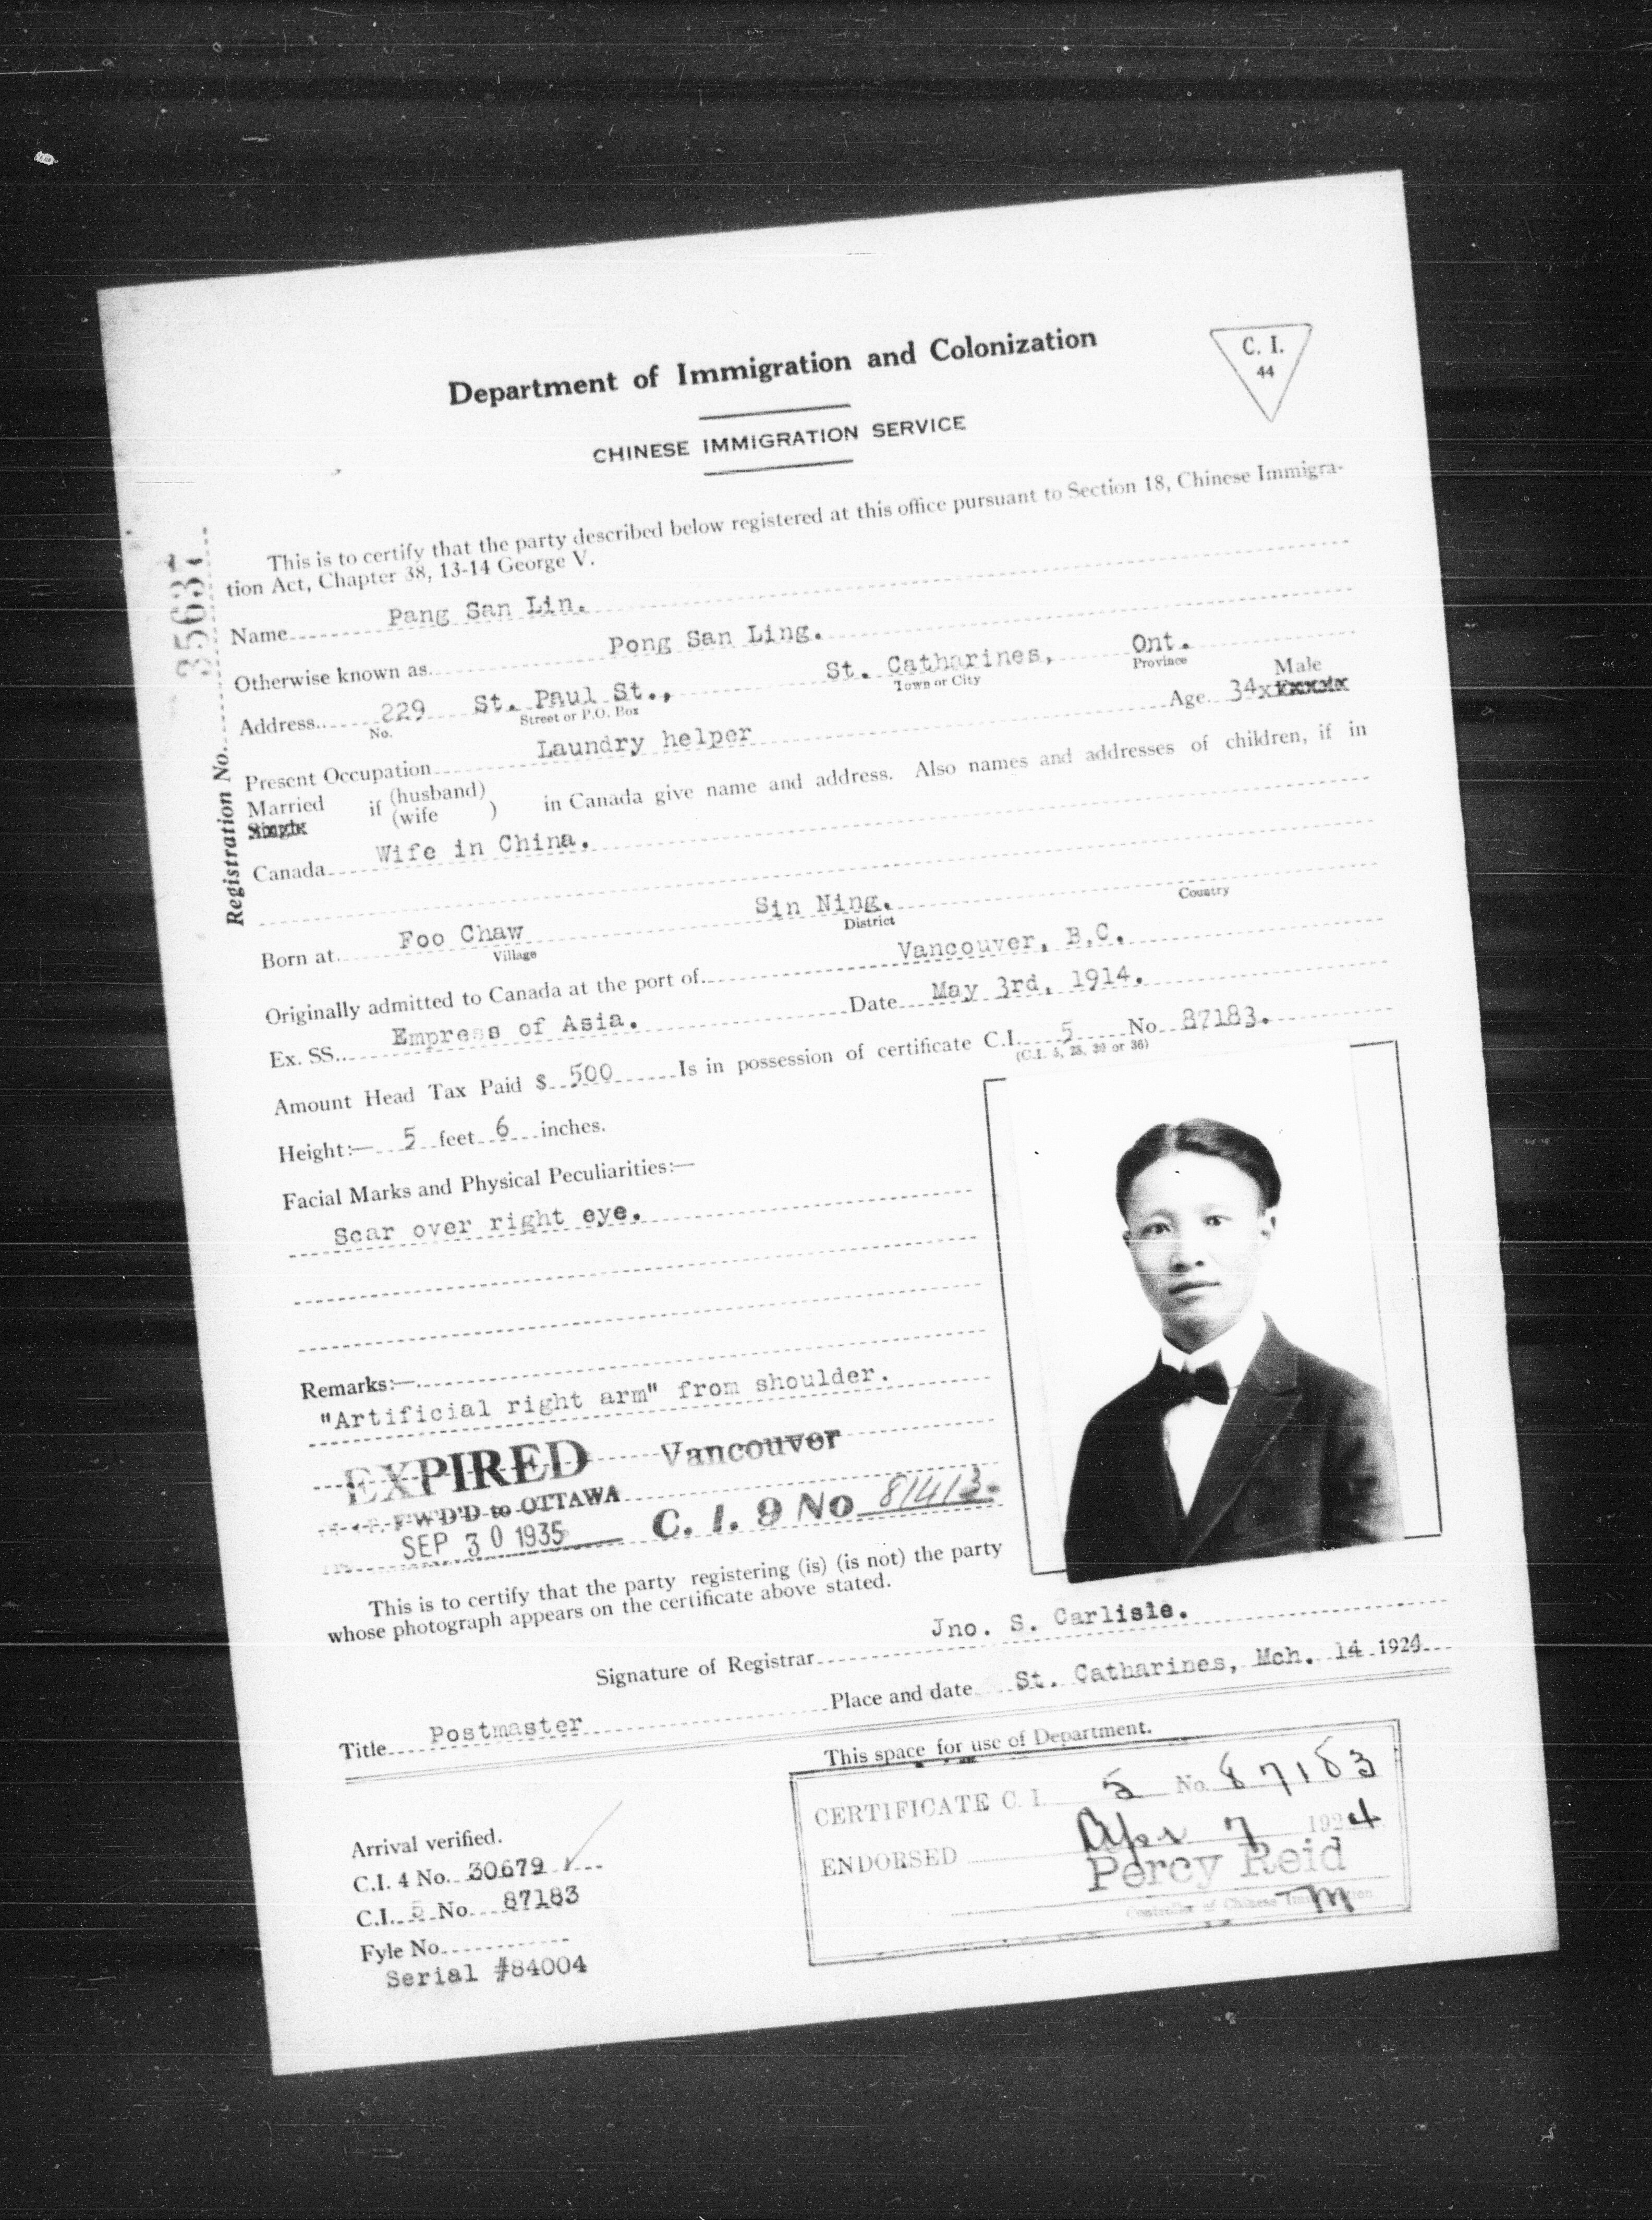 Department of Immigration and Colonization
C. I.
44
CHINESE IMMIGRATION SERVICE
This is to certify that the party described below registered at this office pursuant to Section 18, Chinese Immigra-
tion Act, Chapter 38, 13-14 George V.
Registration No. 35637
Name Pang San Lin.
Otherwise known as Pong San Ling.
Address 229 St. Paul St., St. Catharines, Ont.
No. Street or P.O. Box Town or City Province
Male
Present Occupation Laundry helper Age 34
Married if (husband) in Canada give name and address. Also names and addresses of children, if in
Single (wife )
Canada Wife in China.
Born at Foo Chaw Sin Ning.
Village District Country
Originally admitted to Canada at the port of Vancouver, B.C.
Ex. SS. Empress of Asia. Date May 3rd, 1914.
Amount Head Tax Paid $ 500 Is in possession of certificate C.I. 5 No 87183.
(C.I. 5, 28, 30 or 36)
Height:— 5 feet 6 inches.
Facial Marks and Physical Peculiarities:—
Scar over right eye.
Remarks:—
"Artificial right arm" from shoulder.
EXPIRED Vancouver
F'W'D'D to OTTAWA
SEP 30 1935 C. I. 9 No 81413.
This is to certify that the party registering (is) (is not) the party
whose photograph appears on the certificate above stated.
Signature of Registrar Jno. S. Carlisle.
Title Postmaster Place and date St. Catharines, Mch. 14 1924
This space for use of Department.
CERTIFICATE C. I. 5 No. 87183
ENDORSED Apr 7 1924
Percy Reid
Controller of Chinese Immigration
m
Arrival verified.
C.I. 4 No. 30679
C.I. 5 No 87183
Fyle No
Serial #84004